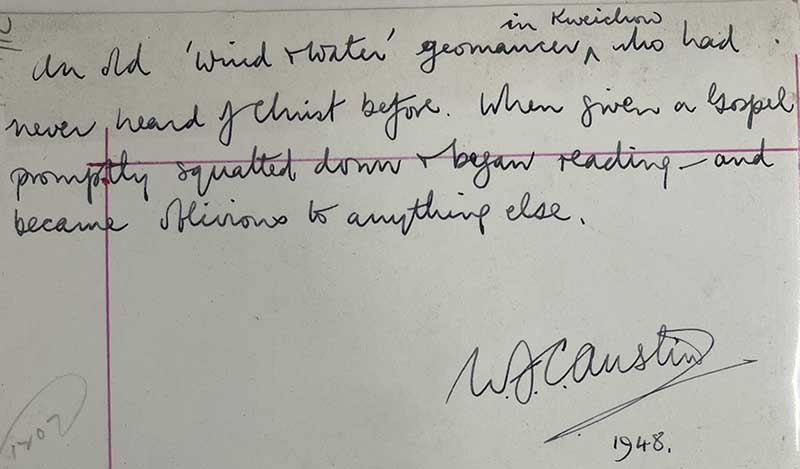 An old 'wind & water' geomancer ^ in Kweichow who had
never heard of Christ before. When given a Gospel
promptly squatted down & began reading – and
became oblivious to anything else.
W.J.C. Austin
1948.